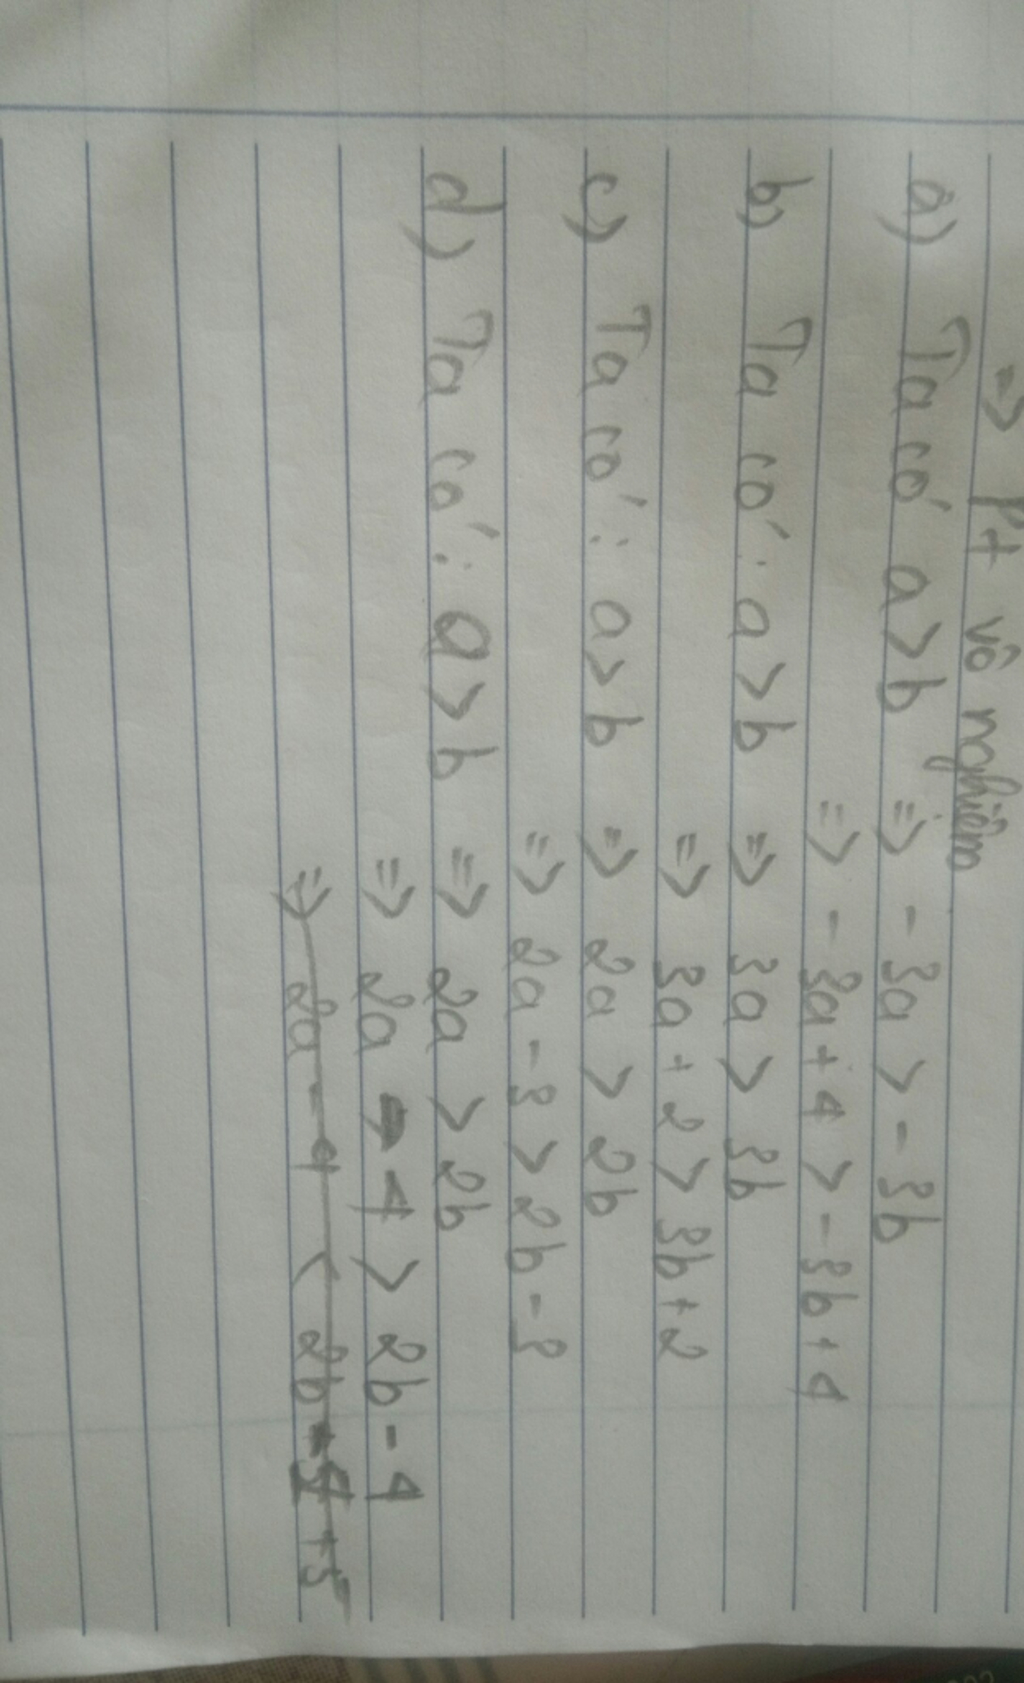 => pt vô nghiệm
a) Ta có a > b => - 3a > - 3b
=> - 3a + 4 > - 3b + 4
b) Ta có : a > b => 3a > 3b
=> 3a + 2 > 3b + 2
c) Ta có : a > b => 2a > 2b
=> 2a - 3 > 2b - 3
d) Ta có : a > b => 2a > 2b
=> 2a - 4 > 2b - 4
=> 2a - 4 < 2b + 5